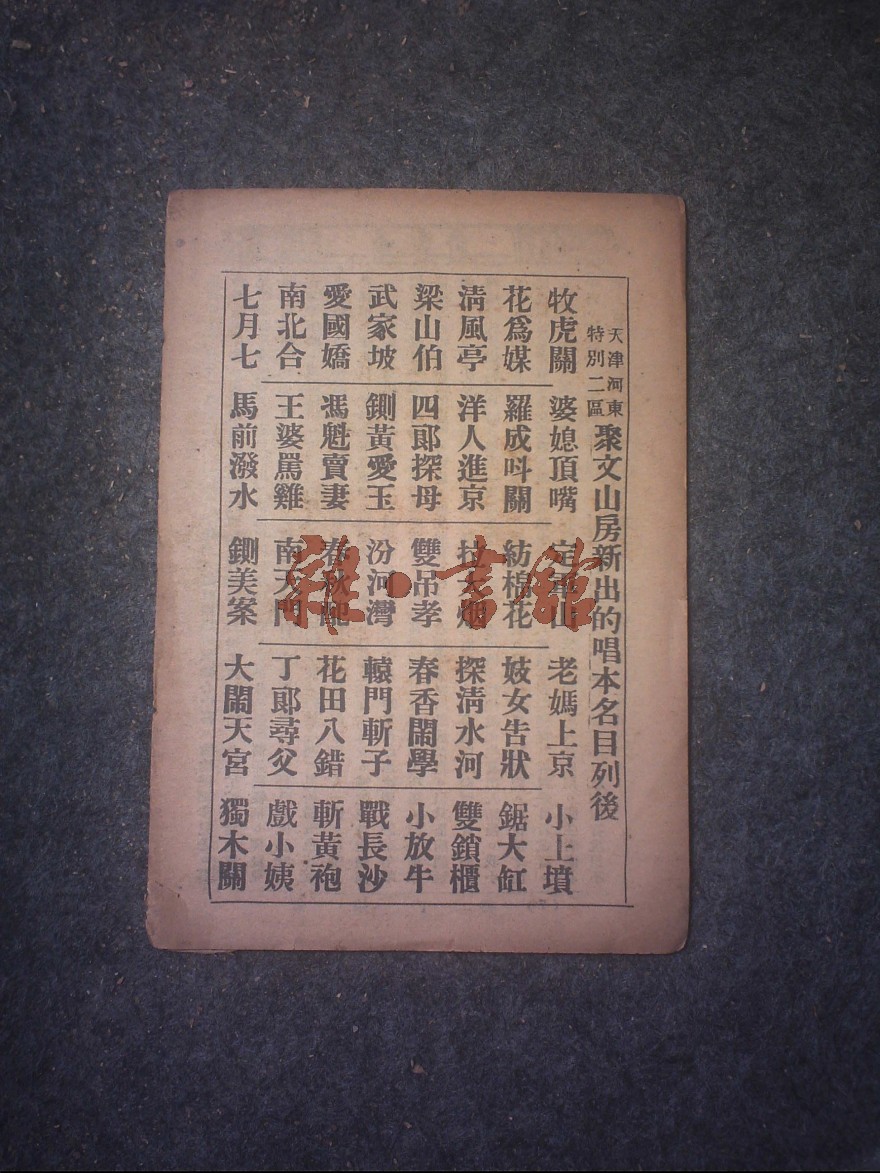 天津河東
特別二區
聚文山房新出的唱本名目列後
牧虎關 婆媳頂嘴 定軍山 老媽上京 小上墳
花爲媒 羅成呌關 紡棉花 妓女告狀 鋸大缸
清風亭 洋人進京 拉大烟 探清水河 雙鎖櫃
梁山伯 四郎探母 雙吊孝 春香鬧學 小放牛
武家坡 鍘黃愛玉 汾河灣 轅門斬子 戰長沙
愛國嬌 馮魁賣妻 春秋配 花田八錯 斬黃袍
南北合 王婆罵雞 南天門 丁郎尋父 戲小姨
七月七 馬前潑水 鍘美案 大鬧天宮 獨木關
雜·書館